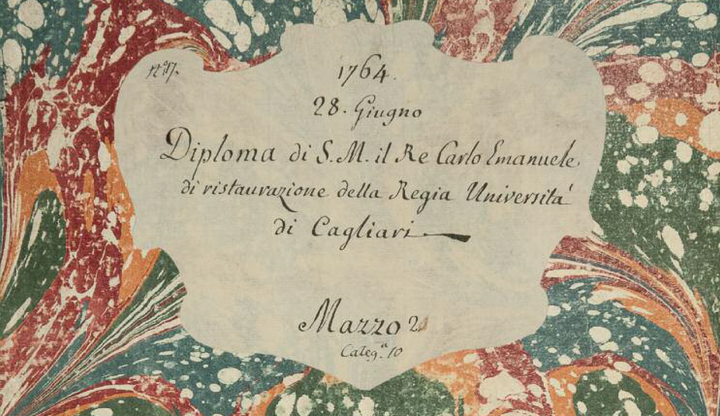 N° 17.
1764.
28. Giugno
Diploma di S. M. il Re Carlo Emanuele,
di ristaurazione della Regia Università
di Cagliari
Mazzo 2
Categ.ª 10